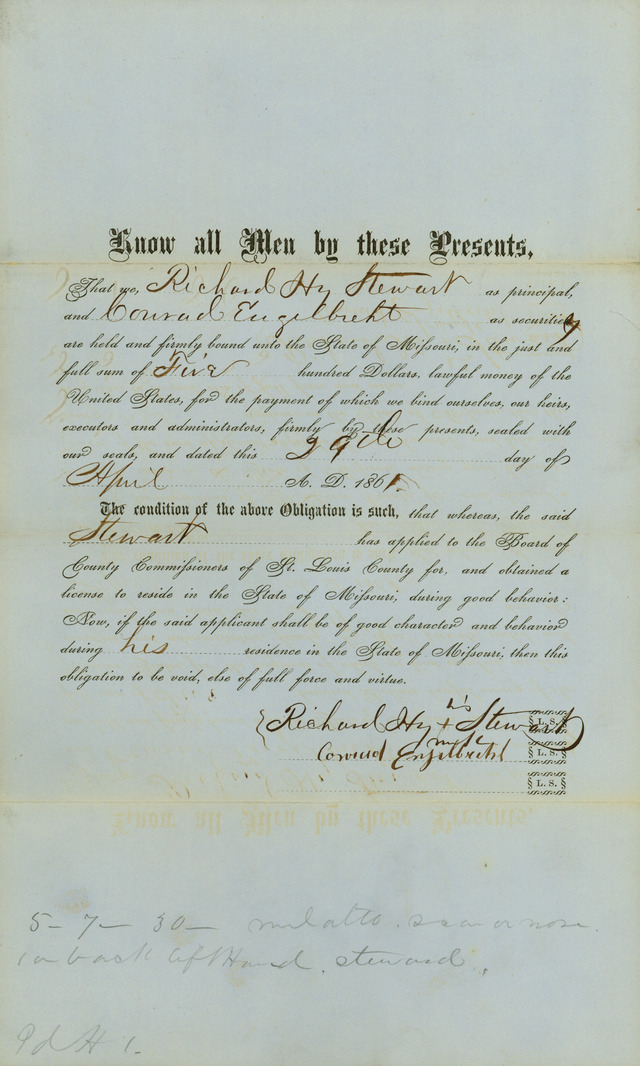 Know all Men by these Presents,
That we, Richard Hy Stewart as principal,
and Conrad Engelbreht as securities
are held and firmly bound unto the State of Missouri, in the just and
full sum of Five hundred Dollars, lawful money of the
United States, for the payment of which we bind ourselves, our heirs,
executors and administrators, firmly by these presents, sealed with
our seals, and dated this 29th day of
April A. D. 1861.
The condition of the above Obligation is such, that whereas, the said
Stewart has applied to the Board of
County Commissioners of St. Louis County for, and obtained a
license to reside in the State of Missouri, during good behavior:
Now, if the said applicant shall be of good character and behavior
during his residence in the State of Missouri, then this
obligation to be void, else of full force and virtue.
his
Richard Hy + Stewart L. S.
mark
Conrad Engelbreht L. S.
L. S.
5-7-30- mulatto. scar on nose.
1 on back left Hand. steward.
Pd H 1.